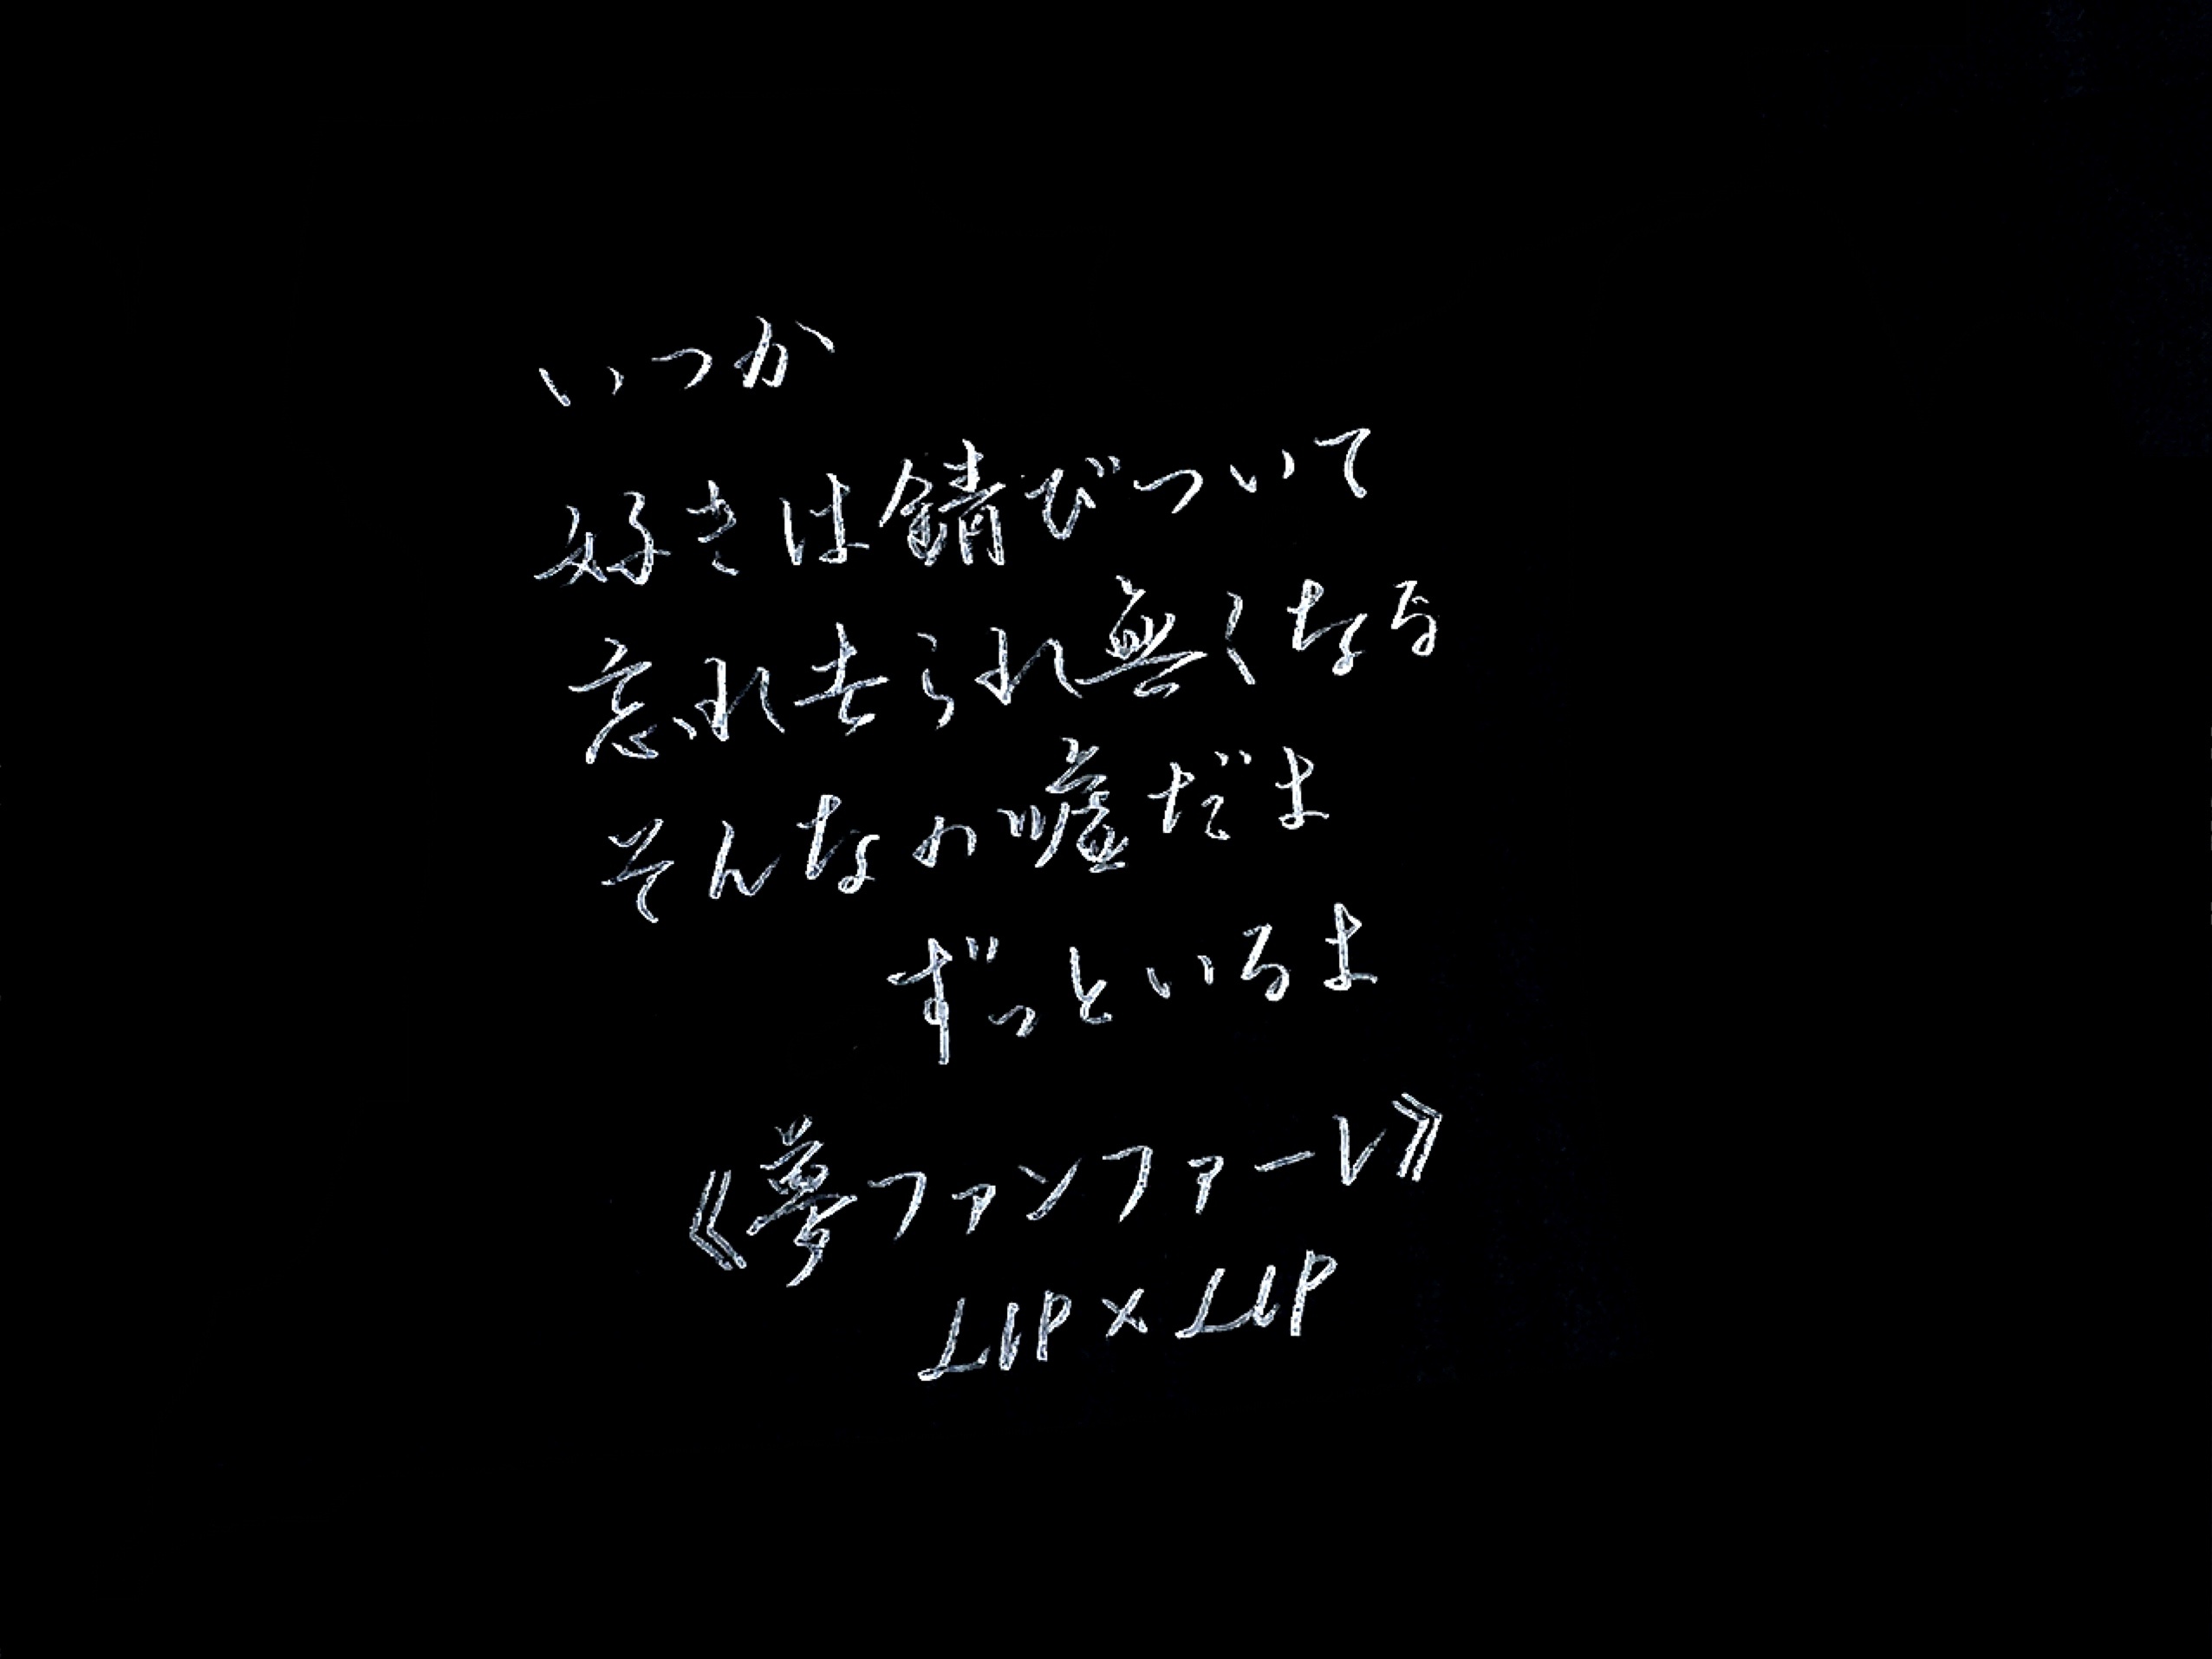 いつか
好きは錆びついて
忘れ去られ無くなる
そんなの嘘だよ
ずっといるよ
《夢ファンファーレ》
LIP×LIP